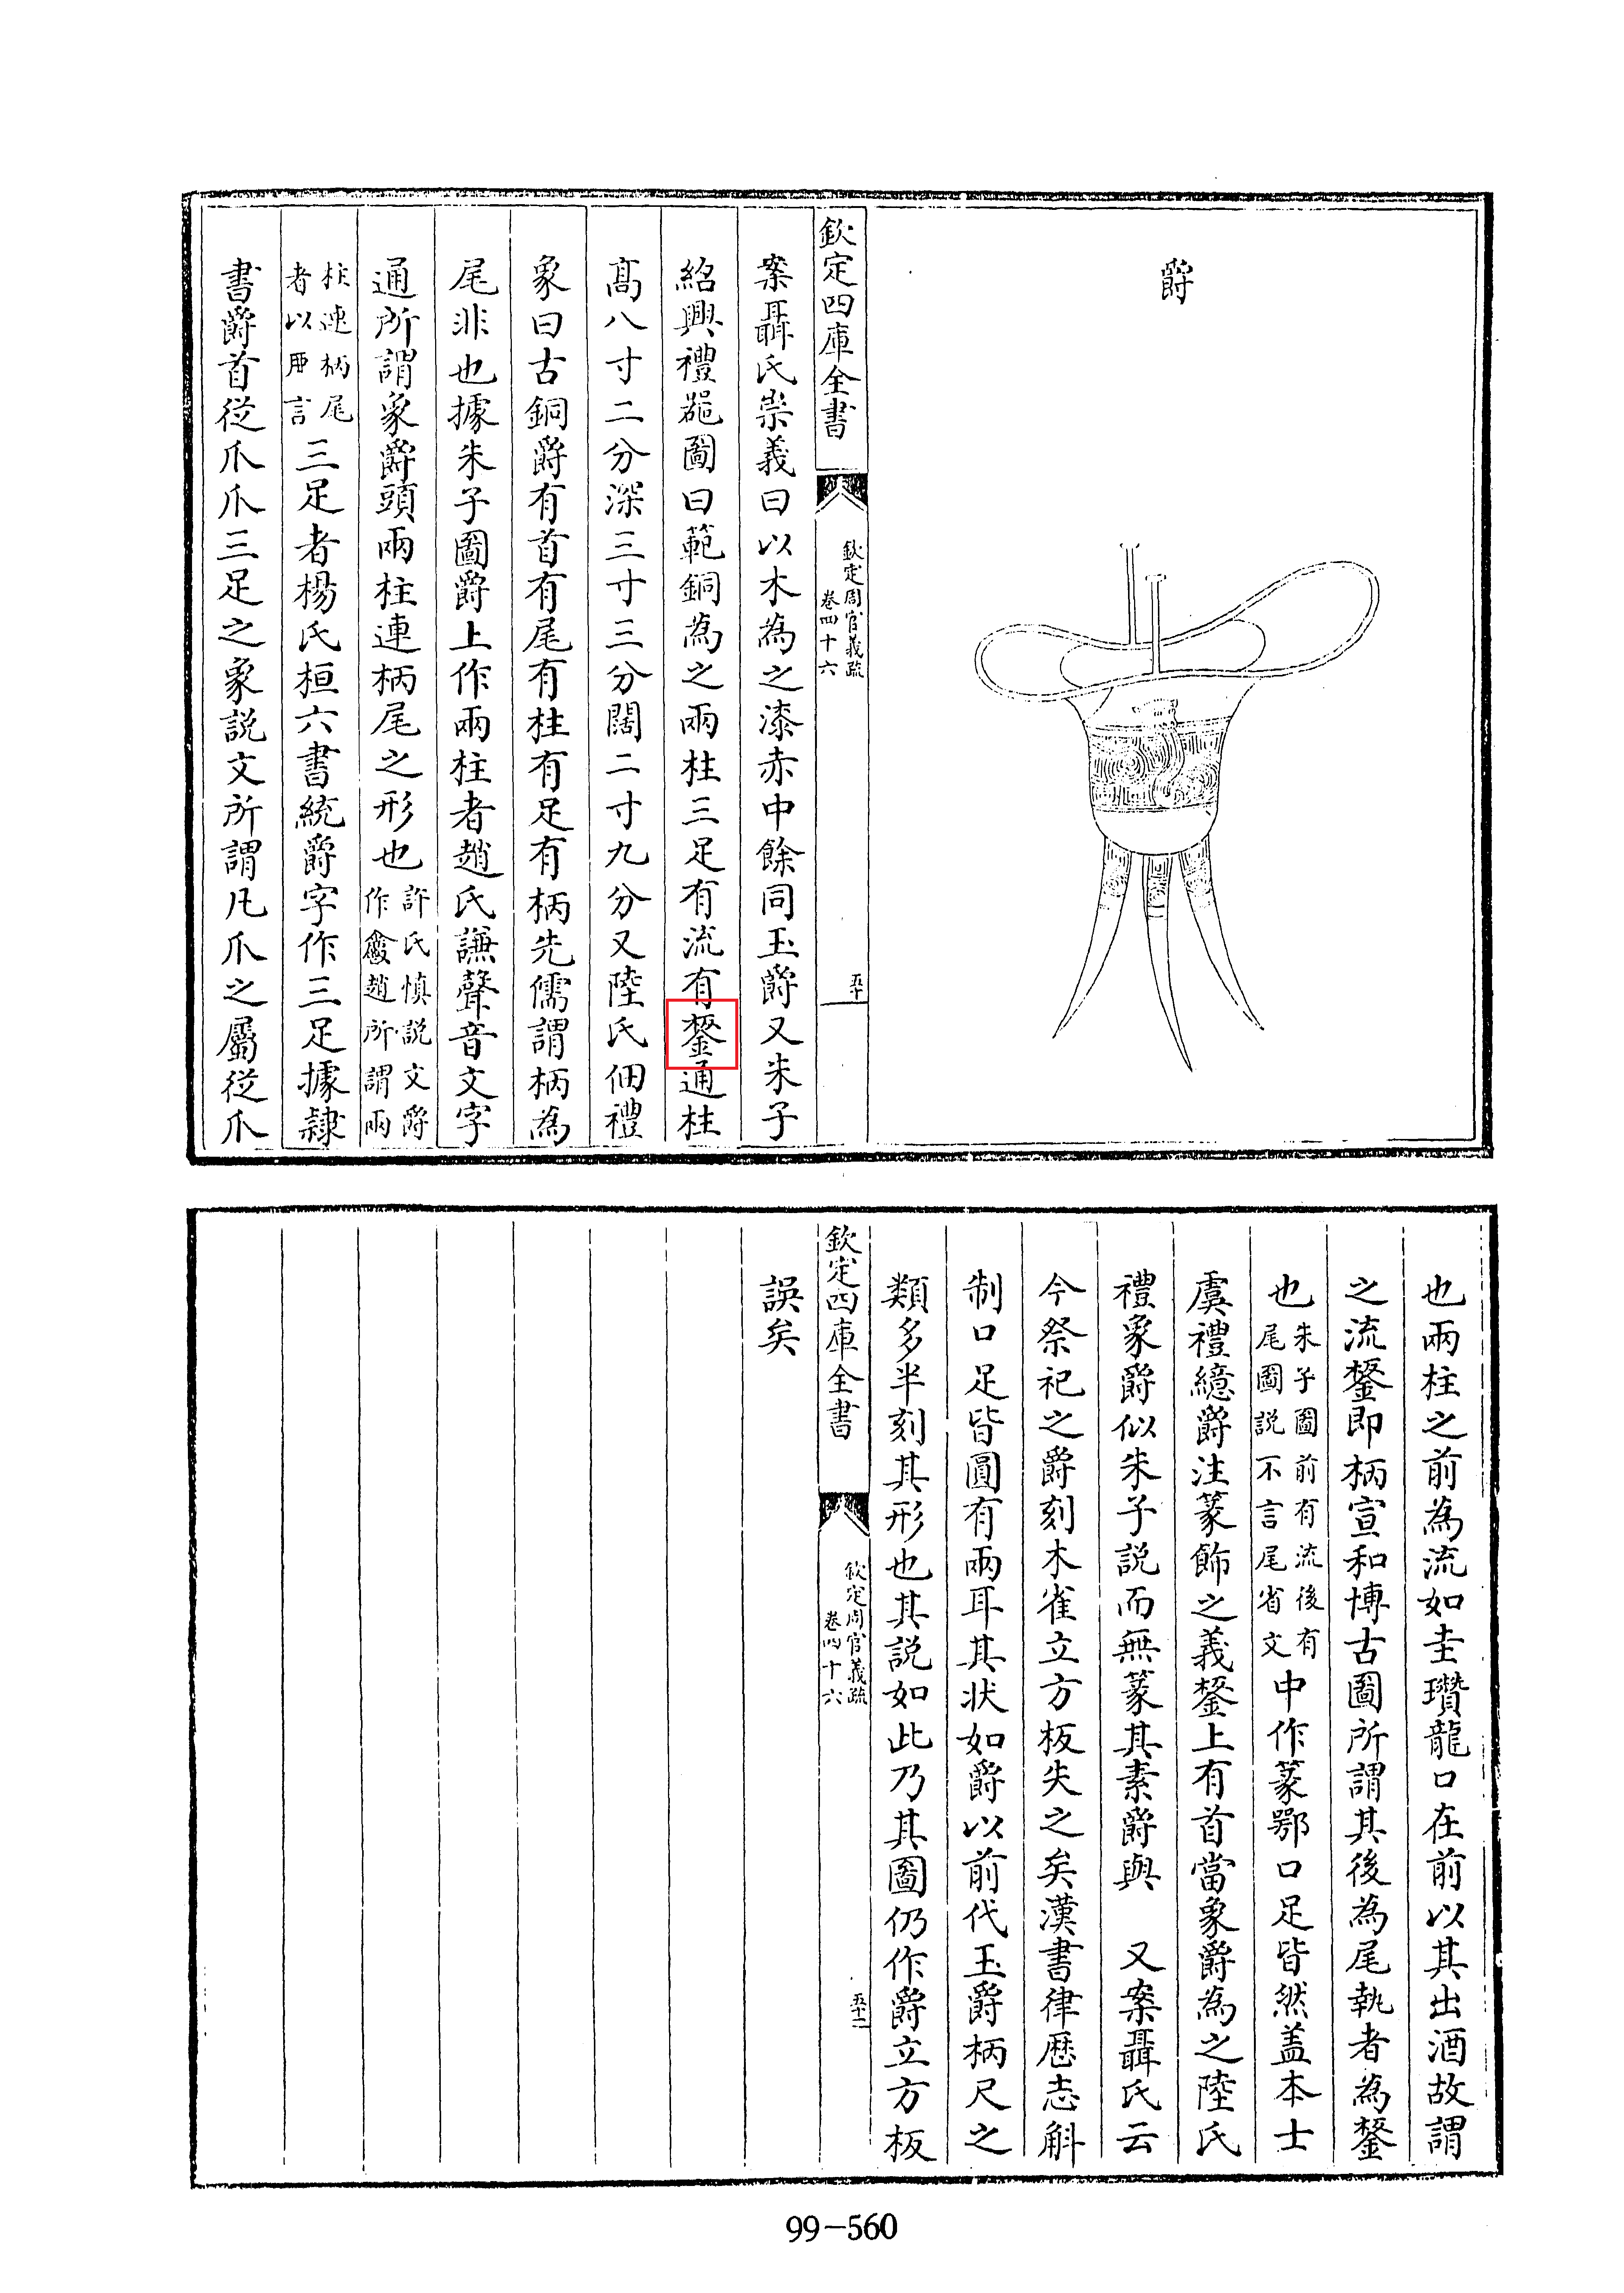 爵
欽定四庫全書
欽定周官義疏
卷四十六
五十
案聶氏崇義曰以木為之漆赤中餘同玉爵又朱子
紹興禮器圖曰範銅為之兩柱三足有流有鋬通柱
髙八寸二分深三寸三分闊二寸九分又陸氏佃禮
象曰古銅爵有首有尾有柱有足有柄先儒謂柄為
尾非也據朱子圖爵上作兩柱者趙氏謙聲音文字
通所謂象爵頭兩柱連柄尾之形也許氏慎説文爵作趙所謂兩
柱連柄尾者以言三足者楊氏桓六書統爵字作三足據隷
書爵首從爪爪三足之象説文所謂凡爪之屬從爪
也兩柱之前為流如圭瓚龍口在前以其出酒故謂
之流鋬即柄宣和博古圖所謂其後為尾執者為鋬
也朱子圖前有流後有尾圖説不言尾省文中作篆鄂口足皆然盖本士
虞禮繶爵注篆飾之義鋬上有首當象爵為之陸氏
禮象爵似朱子説而無篆其素爵與　又案聶氏云
今祭祀之爵刻木雀立方板失之矣漢書律歷志斛
制口足皆圓有兩耳其状如爵以前代玉爵柄尺之
類多半刻其形也其説如此乃其圖仍作爵立方板
欽定四庫全書
欽定周官義疏
卷四十六
五十一
誤矣
99-560